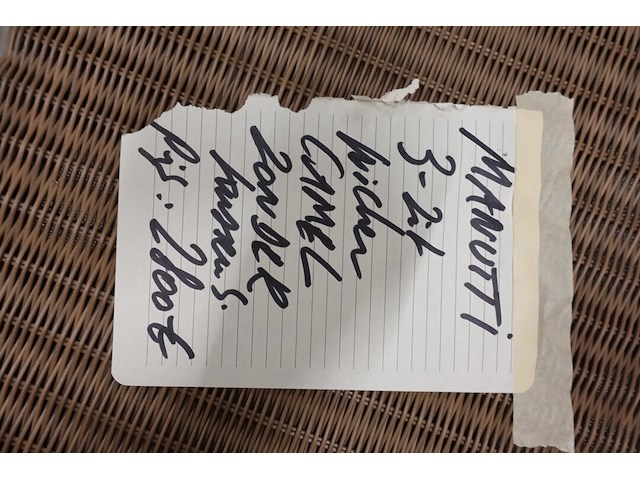 MANUTTI
3-zit
Wicker
CAMEL
ZONDER
kussens.
Prijs: 2800 €